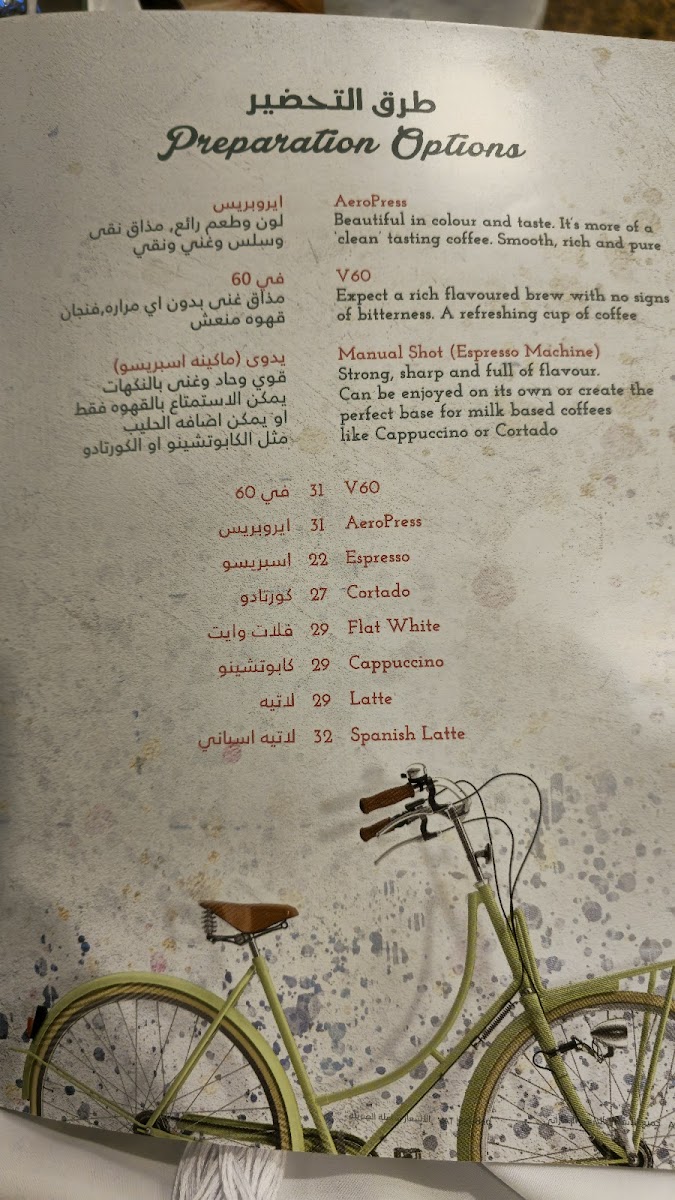 طرق التحضير
Preparation Options
ايروبريس
لون وطعم رائع, مذاق نقى
وسلس وغني ونقي
AeroPress
Beautiful in colour and taste. It's more of a
'clean' tasting coffee. Smooth, rich and pure
في 60
مذاق غنى بدون اي مراره,فنجان
قهوه منعش
V60
Expect a rich flavoured brew with no signs
of bitterness. A refreshing cup of coffee
يدوى (ماكينه اسبريسو)
قوي وحاد وغنى بالنكهات
يمكن الاستمتاع بالقهوه فقط
او يمكن اضافه الحليب
مثل الكابوتشينو او الكورتادو
Manual Shot (Espresso Machine)
Strong, sharp and full of flavour.
Can be enjoyed on its own or create the
perfect base for milk based coffees
like Cappuccino or Cortado
في 60 31 V60
ايروبريس 31 AeroPress
اسبريسو 22 Espresso
كورتادو 27 Cortado
فلات وايت 29 Flat White
كابوتشينو 29 Cappuccino
لاتيه 29 Latte
لاتيه اسباني 32 Spanish Latte